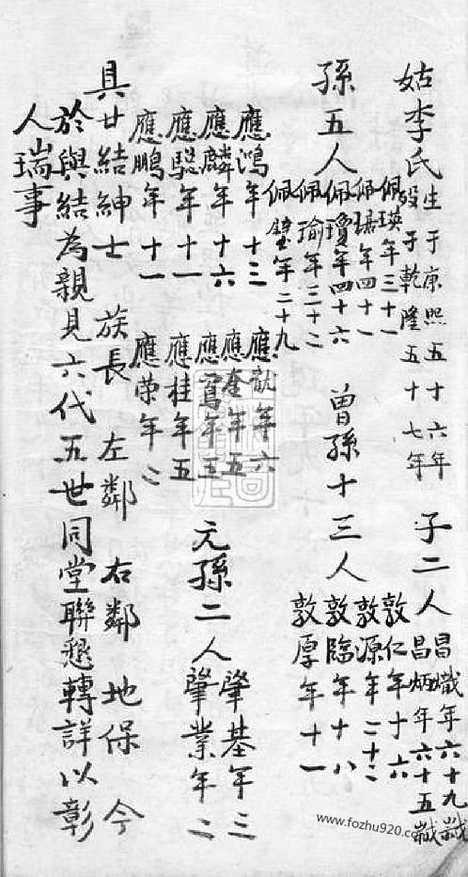 姑李氏 生于康熙五十六年 殁于乾隆五十七年 子二人 昌熾年六十九歲 昌炳年六十五歲
孫五人 佩瑛年三十一 佩琚年四十一 佩瓊年四十六 佩瑜年三十二 佩璧年二十九 曾孫十三人 敦仁年十六 敦源年二十二 敦臨年十八 敦厚年十一
應鴻年十三 應麟年十六 應駿年十一 應鵬年十一 應龍年六 應奎年五 應鳶年五 應桂年五 應荣年二 元孫二人 肇基年三 肇業年二
具甘結紳士 族長 左鄰 右鄰 地保 今
於與結為親見六代五世同堂聯懇轉詳以彰
人瑞事
www.fozhu920.com